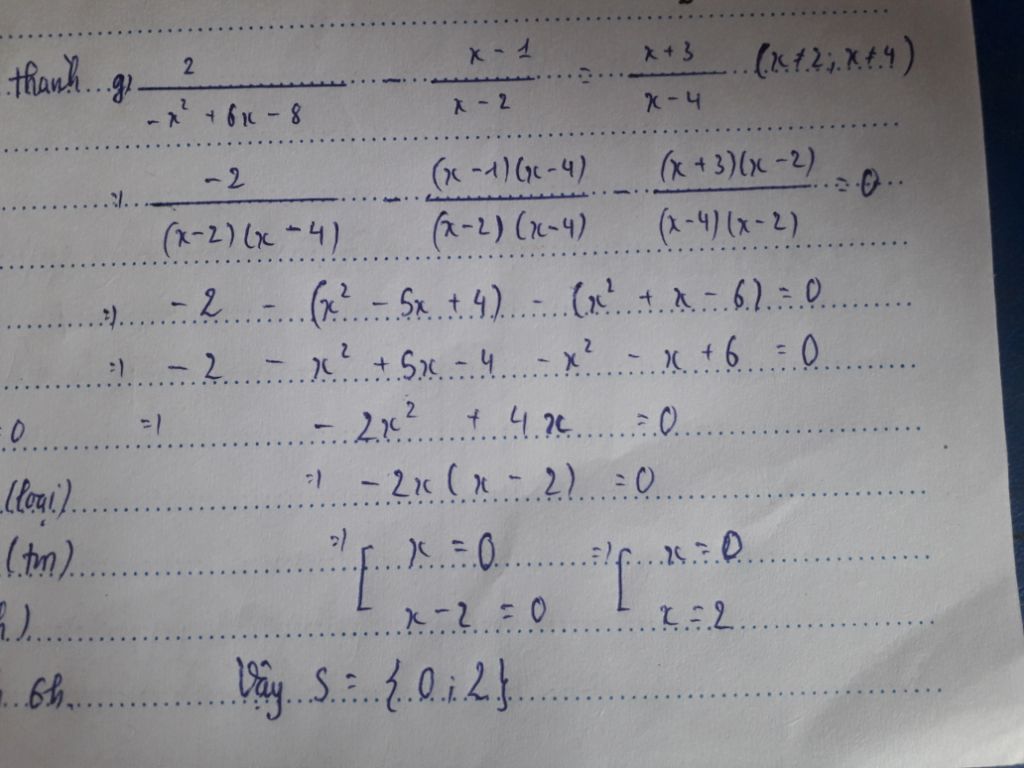 thanh g, 2/(-x² + 6x - 8) - (x - 1)/(x - 2) = (x + 3)/(x - 4) (x ≠ 2; x ≠ 4)
=) -2/((x-2)(x-4)) - ((x-1)(x-4))/((x-2)(x-4)) - ((x+3)(x-2))/((x-4)(x-2)) = 0
=) -2 - (x² - 5x + 4) - (x² + x - 6) = 0
=) -2 - x² + 5x - 4 - x² - x + 6 = 0
=0 =) -2x² + 4x = 0
(loại) =) -2x(x - 2) = 0
(tm) =) [ x = 0 =) [ x = 0
x - 2 = 0 x = 2
6h. Vậy S = {0; 2}